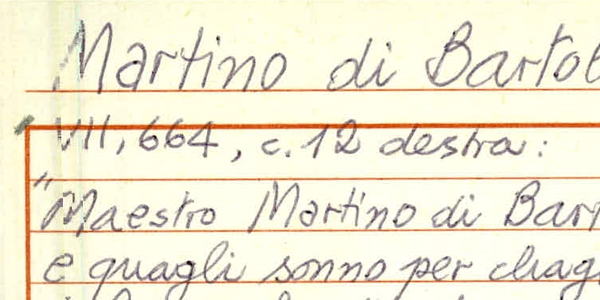 Martino di Bartol
VII, 664, c. 12 destra:
"Maestro Martino di Bart
e quagli sonno per chag